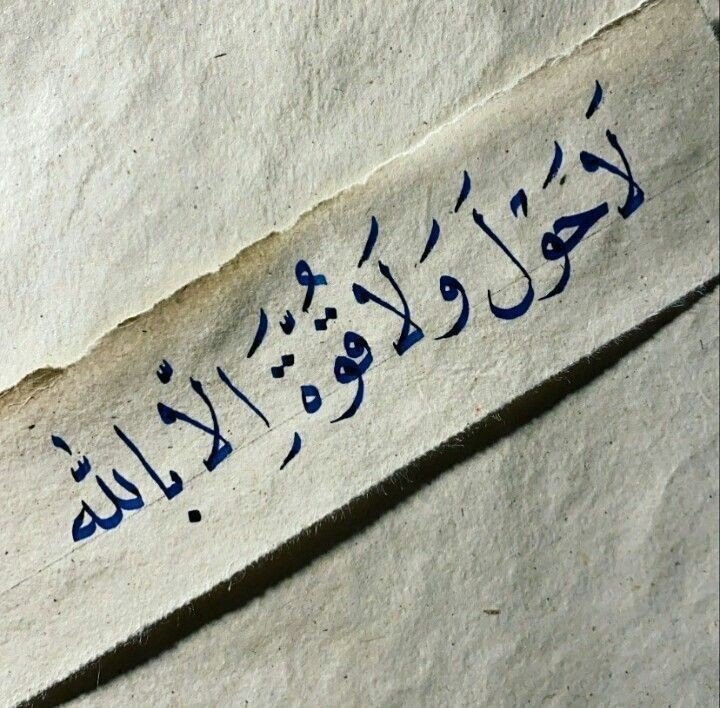 لَا حَوْلَ وَلَا قُوَّةَ الاّ بالله